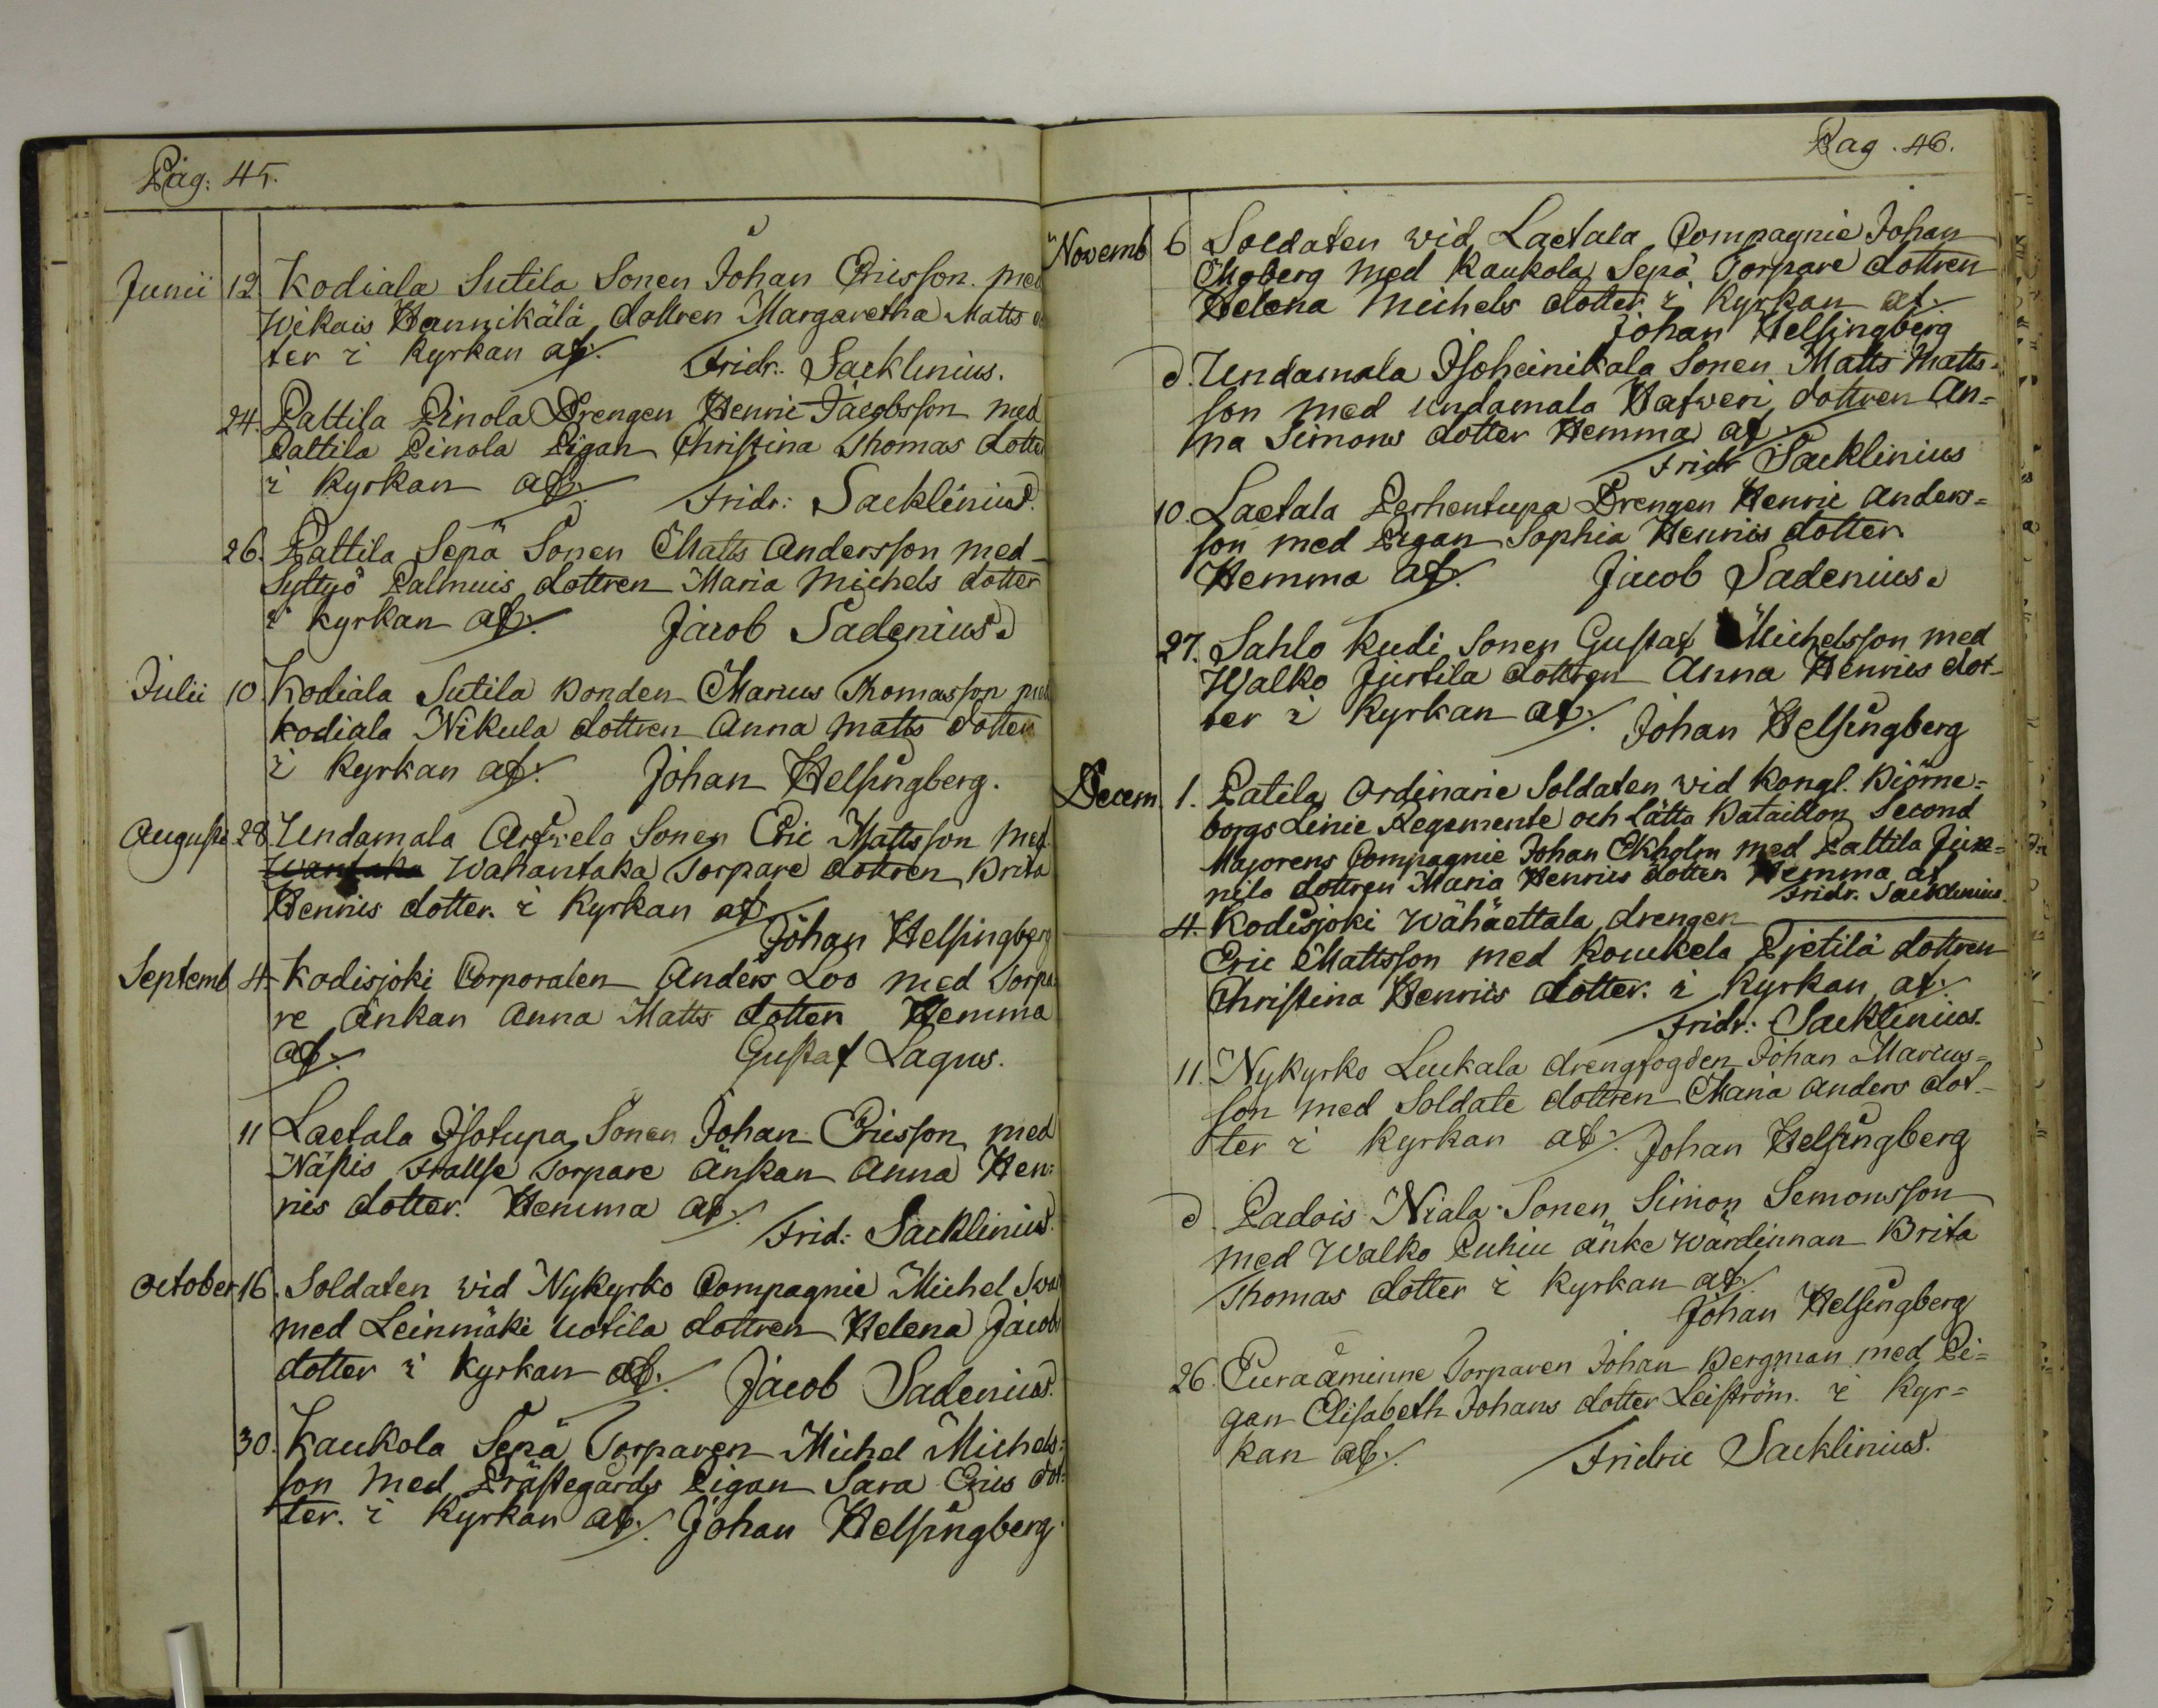 Pag: 45.
Junii 12. Kodiala Sutila Sonen Johan Ericsson. med
Wikais Hannikälä dottren Margaretha Matts do
ter i Kyrkan af:
Fridr. Sacklinius.
24. Pattila Pinola Drengen Henric Jacobsson med
Pattila Pinola Pigan Christina Thomas dotter
i Kyrkan af:
Fridr: Sacklinius.
26. Pattila Sepä Sonen Matts Andersson med
Syttyö Palmuis dottren Maria Michels dotter
i kyrkan af:
Jacob Sadenius.
Julii 10. Kodiala Sutila Bonden Marcus Thomasson med
Kodiala Nikula dottren Anna Matts dotter
i Kyrkan af:
Johan Helsingberg.
Augusti 28 Undamala Arfvela Sonen Eric Mattsson med
Wantaka Wahantaka Torpare dottren Brita
Henrics dotter. i Kyrkan af
Johan Helsingberg
Septemb 4. Kodisjoki Corporalen Anders Loo med Torpa
re änkan Anna Matts dotter Hemma
af:
Gustaf Lagus.
11 Laetala Isotupa Sonen Johan Ericsson med
Näsis Frallse Torpare Änkan Anna Hen:
rics dotter. Hemma af:
Frid: Sacklinius.
October 16. Soldaten vid Nykyrko Compagnie Michel
med Leinmäki Uotila dottren Helena Jacobs
dotter i Kyrkan af:
Jacob Sadenius.
30. Kaukola Sepä Torparen Michel Michels:
son med Prästegårds Pigan Sara Erics dot:
ter. i Kyrkan af:
Johan Helsingberg.
Pag. 46.
Novemb 6 Soldaten vid Laetala Compagnie Johan
Moberg med Kaukola Sepä Torpare dottren
Helena Michels dotter i Kyrkan af.
Johan Helsingberg
d. Undamala Isoheinikala Sonen Matts Matts-
son med Undamala Hafweri dottren An=
na Simons dotter Hemma af
Fridr Sacklinius
10. Laetala Perhentupa Drengen Henric Anders=
son med Pigan Sophia Henrics dotter
Hemma af.
Jacob Sadenius.
27. Sahlo Kudi Sonen Gustaf Michelsson med
Walko Jurtila dottren Anna Henrics dot-
ter i Kyrkan af:
Johan Helsingberg
Decem. 1. Patila Ordinarie Soldaten vid Kongl. Björne=
borgs Linie Regemente och Lätta Bataillon Second
Majorens Compagnie Johan Ekholm med Pattila Jun=
nila dottren Maria Henrics dotter Hemma af
Fridr. Sacklinius.
4. Kodisjoki Wähäettala drengen
Eric Mattsson med Koukela Pjetilä dottren
Christina Henrics dotter. i Kyrkan af:
Fridr: Sacklinius.
11. Nykyrko Leukala drengfogden Johan Marcus=
son med Soldate dottren Maria Anders dot-
ter i Kyrkan af:
Johan Helsingberg
d. Padois Niala Sonen Simon Semonsson
med Walko Puhiu änke Wärdinnan Brita
Thomas dotter i Kyrkan af:
Johan Helsingberg
26. Euraåminne Torparen Johan Bergman med Pi=
gan Elisabeth Johans dotter Leiström. i Kyr=
kan af:
Fridric Sacklinius.